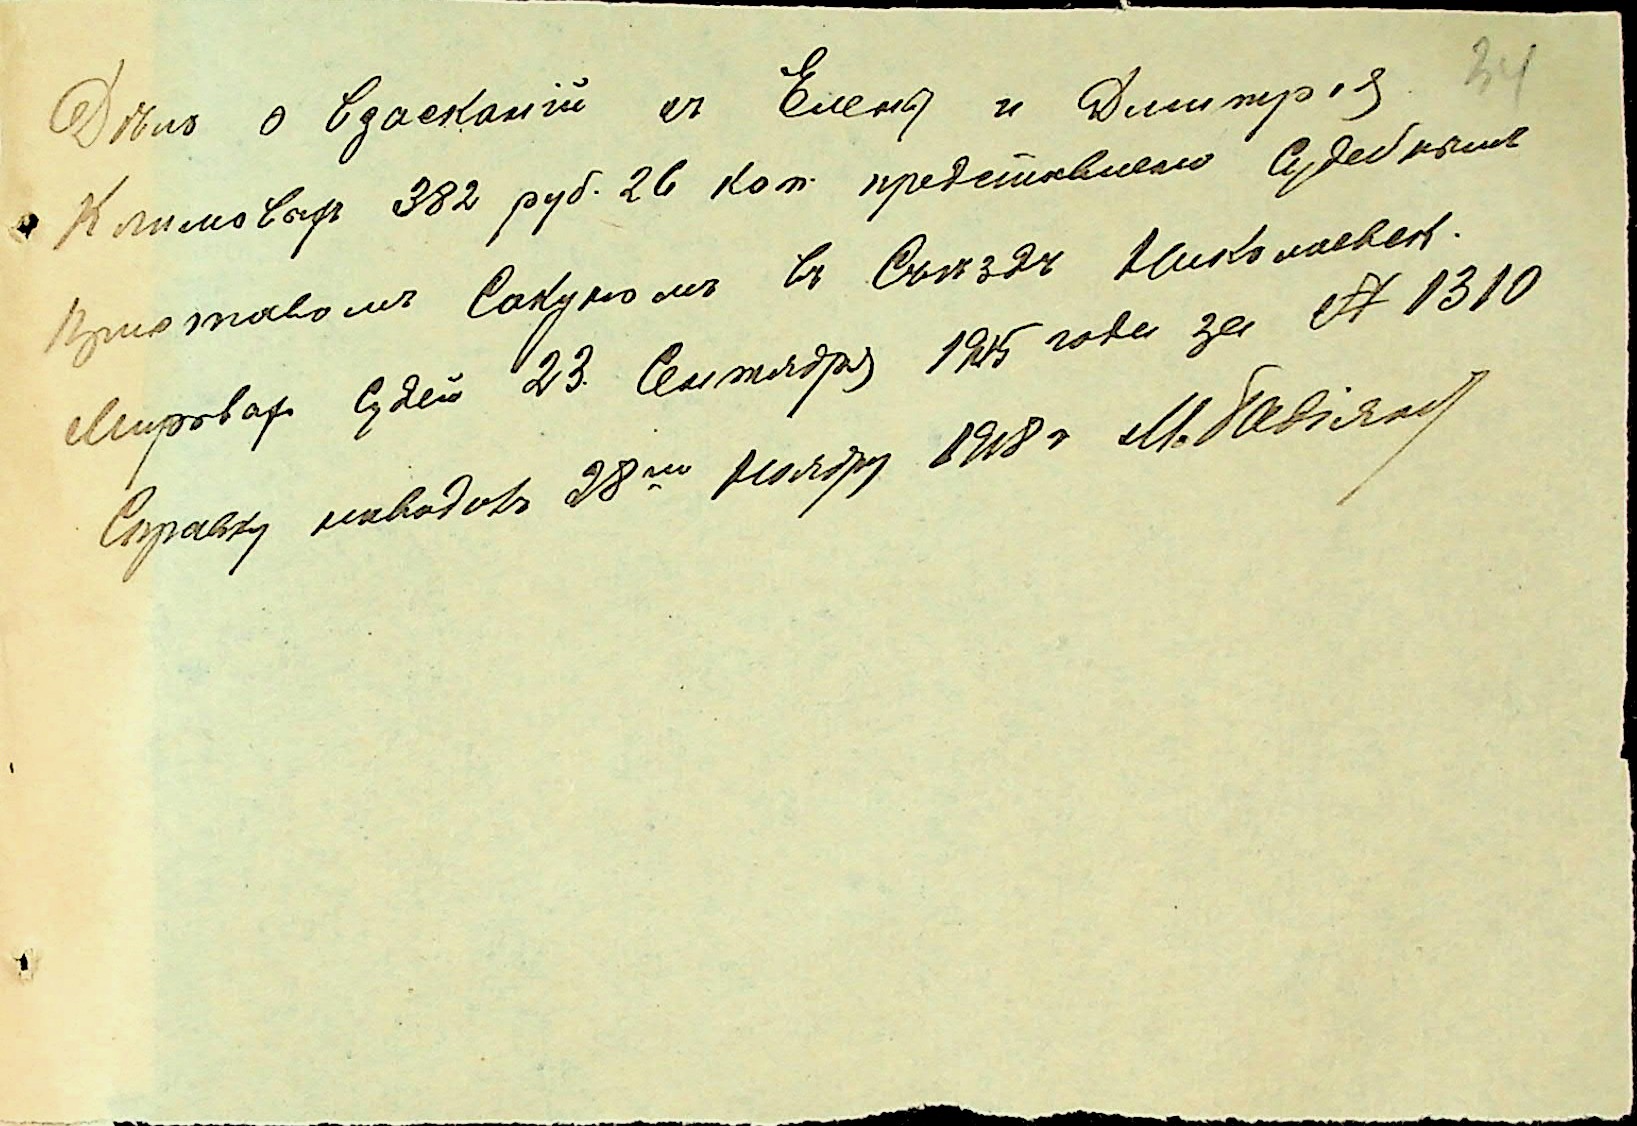 34
Дѣло о взысканiй съ Елены и Дмитрiя
Климовыхъ 382 руб. 26 коп. представлено Судебнымъ
Приставомъ Сакуномъ въ Съѣздъ Николаевск.
Мировых Судей 23 Сентября 1915 года за № 1310
Справку наводовъ 28го Ноября 1918 г М.